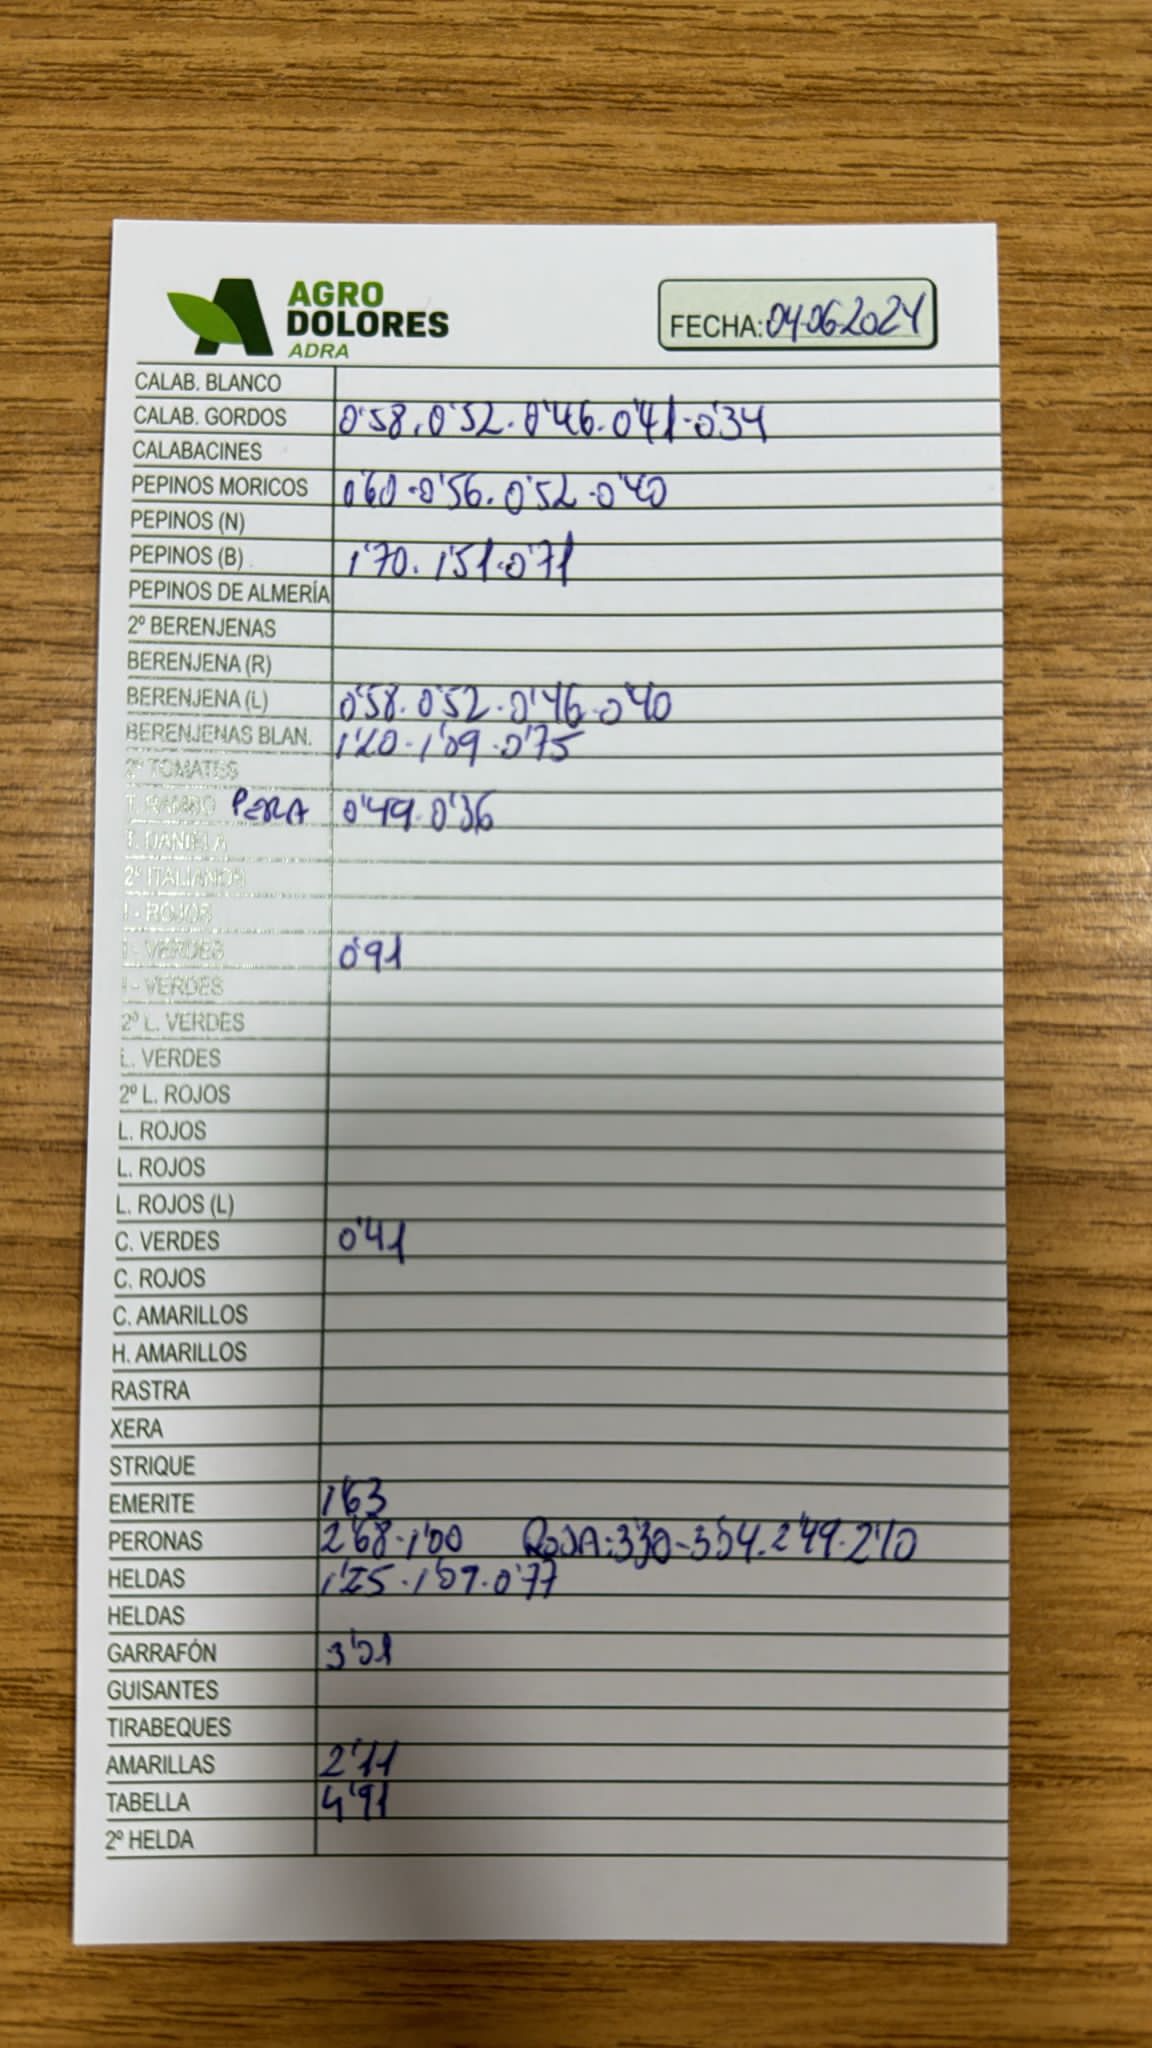 AGRO
DOLORES
ADRA
FECHA: 04-06-2024
CALAB. BLANCO
CALAB. GORDOS 0'58. 0'52. 0'46. 0'41-0'34
CALABACINES
PEPINOS MORICOS 0'60-0'56. 0'52-0'40
PEPINOS (N)
PEPINOS (B) 1'70. 1'51-0'71
PEPINOS DE ALMERÍA
2º BERENJENAS
BERENJENA (R)
BERENJENA (L) 0'58. 0'52-0'46-0'40
BERENJENAS BLAN. 1'20-1'09-0'75
2º TOMATES
T. RAMBO PERA 0'49-0'36
T. DANIELA
2º ITALIANOS
I - ROJOS
I - VERDES 0'91
I - VERDES
2º L. VERDES
L. VERDES
2º L. ROJOS
L. ROJOS
L. ROJOS
L. ROJOS (L)
C. VERDES 0'41
C. ROJOS
C. AMARILLOS
H. AMARILLOS
RASTRA
XERA
STRIQUE
EMERITE 1'63
PERONAS 2'68-1'00 ROJA: 3'30-3'54-2'49-2'10
HELDAS 1'25-1'07-0'77
HELDAS
GARRAFÓN 3'01
GUISANTES
TIRABEQUES
AMARILLAS 2'11
TABELLA 4'91
2º HELDA